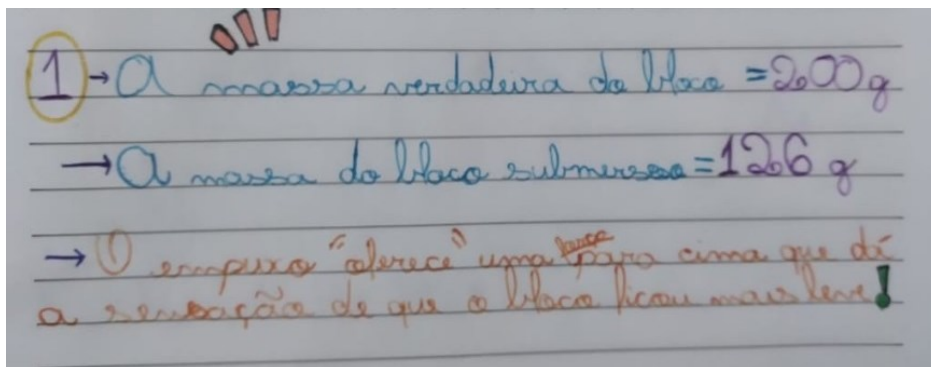 1 → A massa verdadeira do bloco = 200g
→ A massa do bloco submerso = 126 g
→ O empuxo "oferece" uma força para cima que dá
a sensação de que o bloco ficou mais leve!